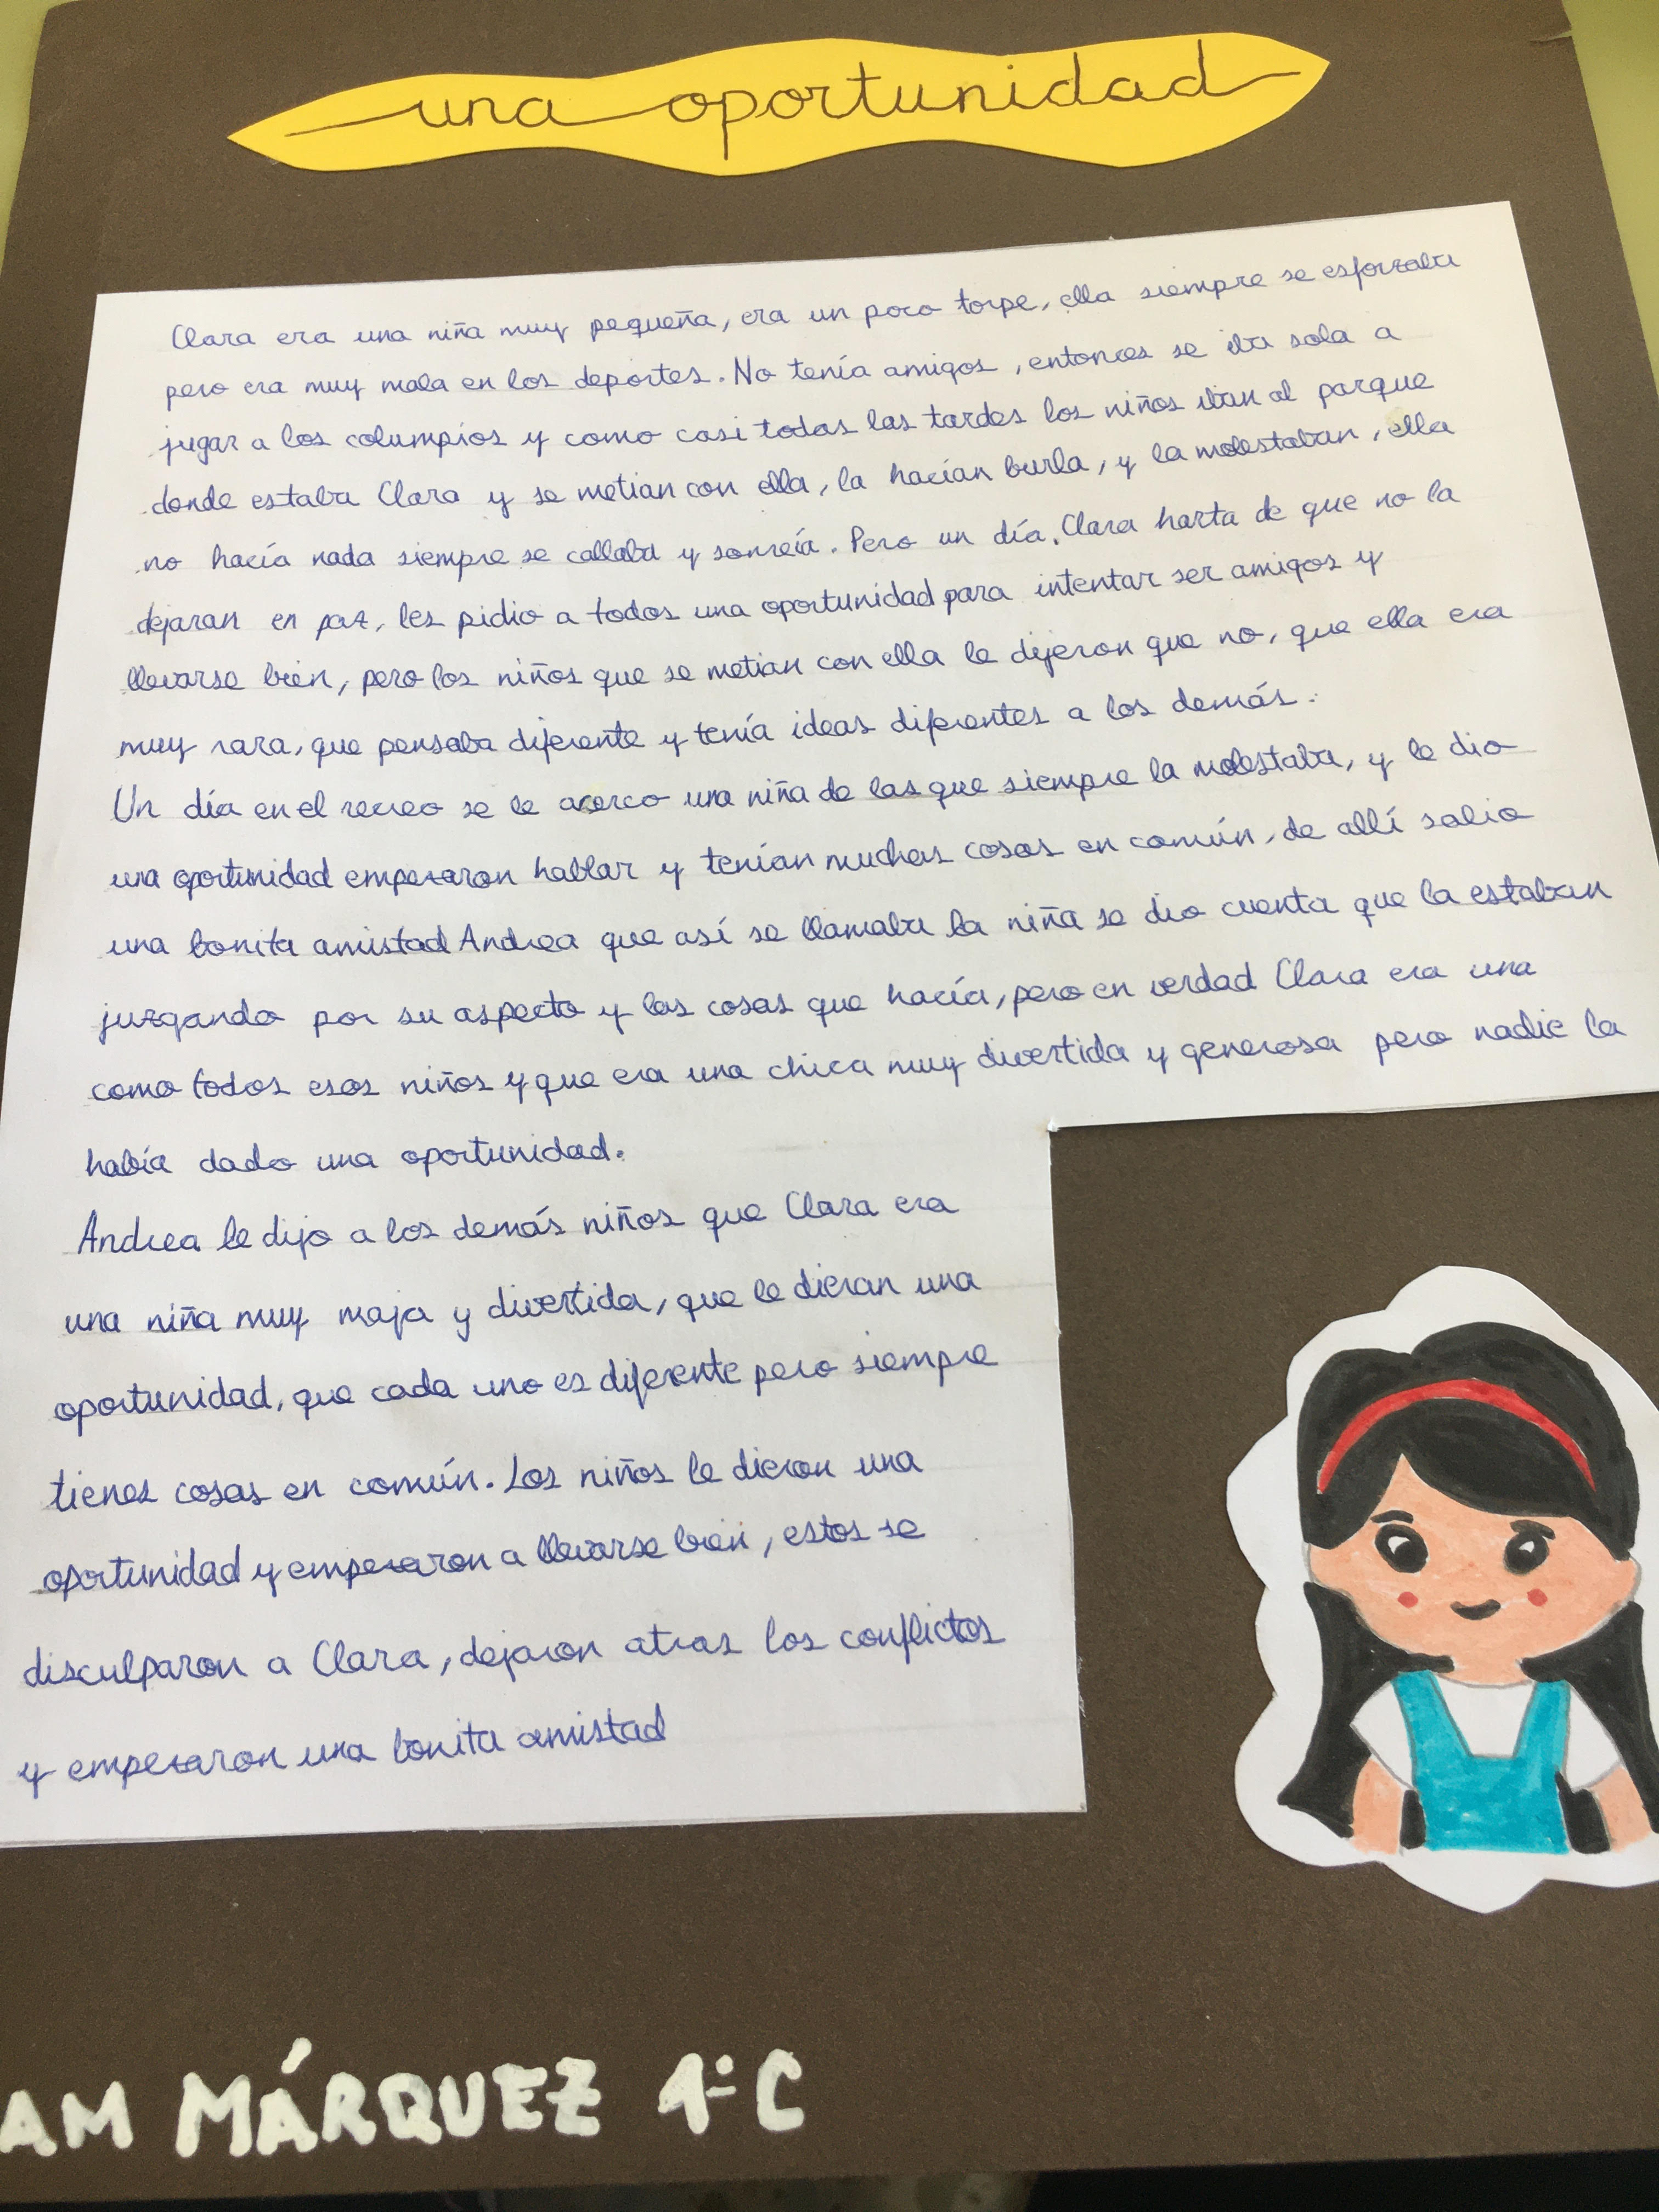 una oportunidad
Clara era una niña muy pequeña, era un poco torpe, ella siempre se esforzaba
pero era muy mala en los deportes. No tenía amigos, entonces se iba sola a
jugar a los columpios y como casi todas las tardes los niños iban al parque
donde estaba Clara y se metian con ella, la hacían burla, y la molestaban, ella
no hacía nada siempre se callaba y sonreía. Pero un día, Clara harta de que no la
dejaran en paz, les pidio a todos una oportunidad para intentar ser amigos y
llevarse bien, pero los niños que se metian con ella le dijeron que no, que ella era
muy rara, que pensaba diferente y tenía ideas diferentes a los demás.
Un día en el recreo se le acerco una niña de las que siempre la molestaba, y le dio
una oportunidad empezaron hablar y tenían muchas cosas en común, de allí salio
una bonita amistad Andrea que así se llamaba la niña se dio cuenta que la estaban
juzgando por su aspecto y las cosas que hacía, pero en verdad Clara era una
como todos esos niños y que era una chica muy divertida y generosa pero nadie la
había dado una oportunidad.
Andrea le dijo a los demás niños que Clara era
una niña muy maja y divertida, que le dieran una
oportunidad, que cada uno es diferente pero siempre
tienes cosas en común. Los niños le dieron una
oportunidad y empezaron a llevarse bien, estos se
disculparon a Clara, dejaron atras los conflictos
y empezaron una bonita amistad
AM MÁRQUEZ 1ºC